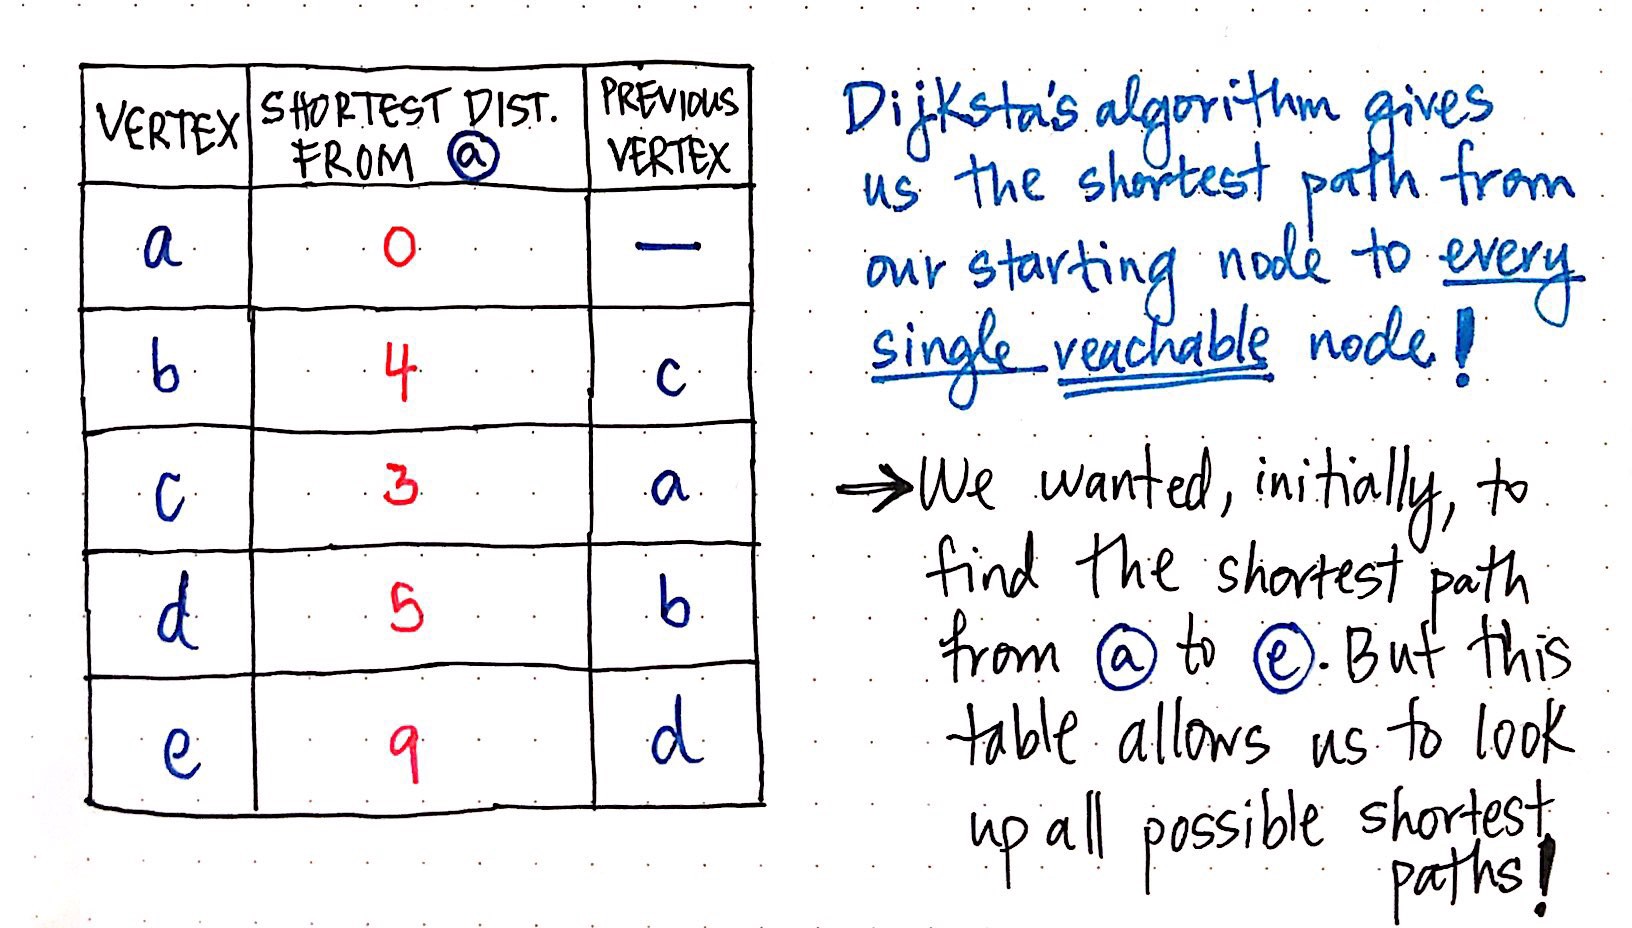 VERTEX SHORTEST DIST. FROM a PREVIOUS VERTEX
a 0 —
b 4 c
c 3 a
d 5 b
e 9 d
Dijksta's algorithm gives
us the shortest path from
our starting node to every
single reachable node!
→ We wanted, initially, to
find the shortest path
from a to e. But this
table allows us to look
up all possible shortest
paths!